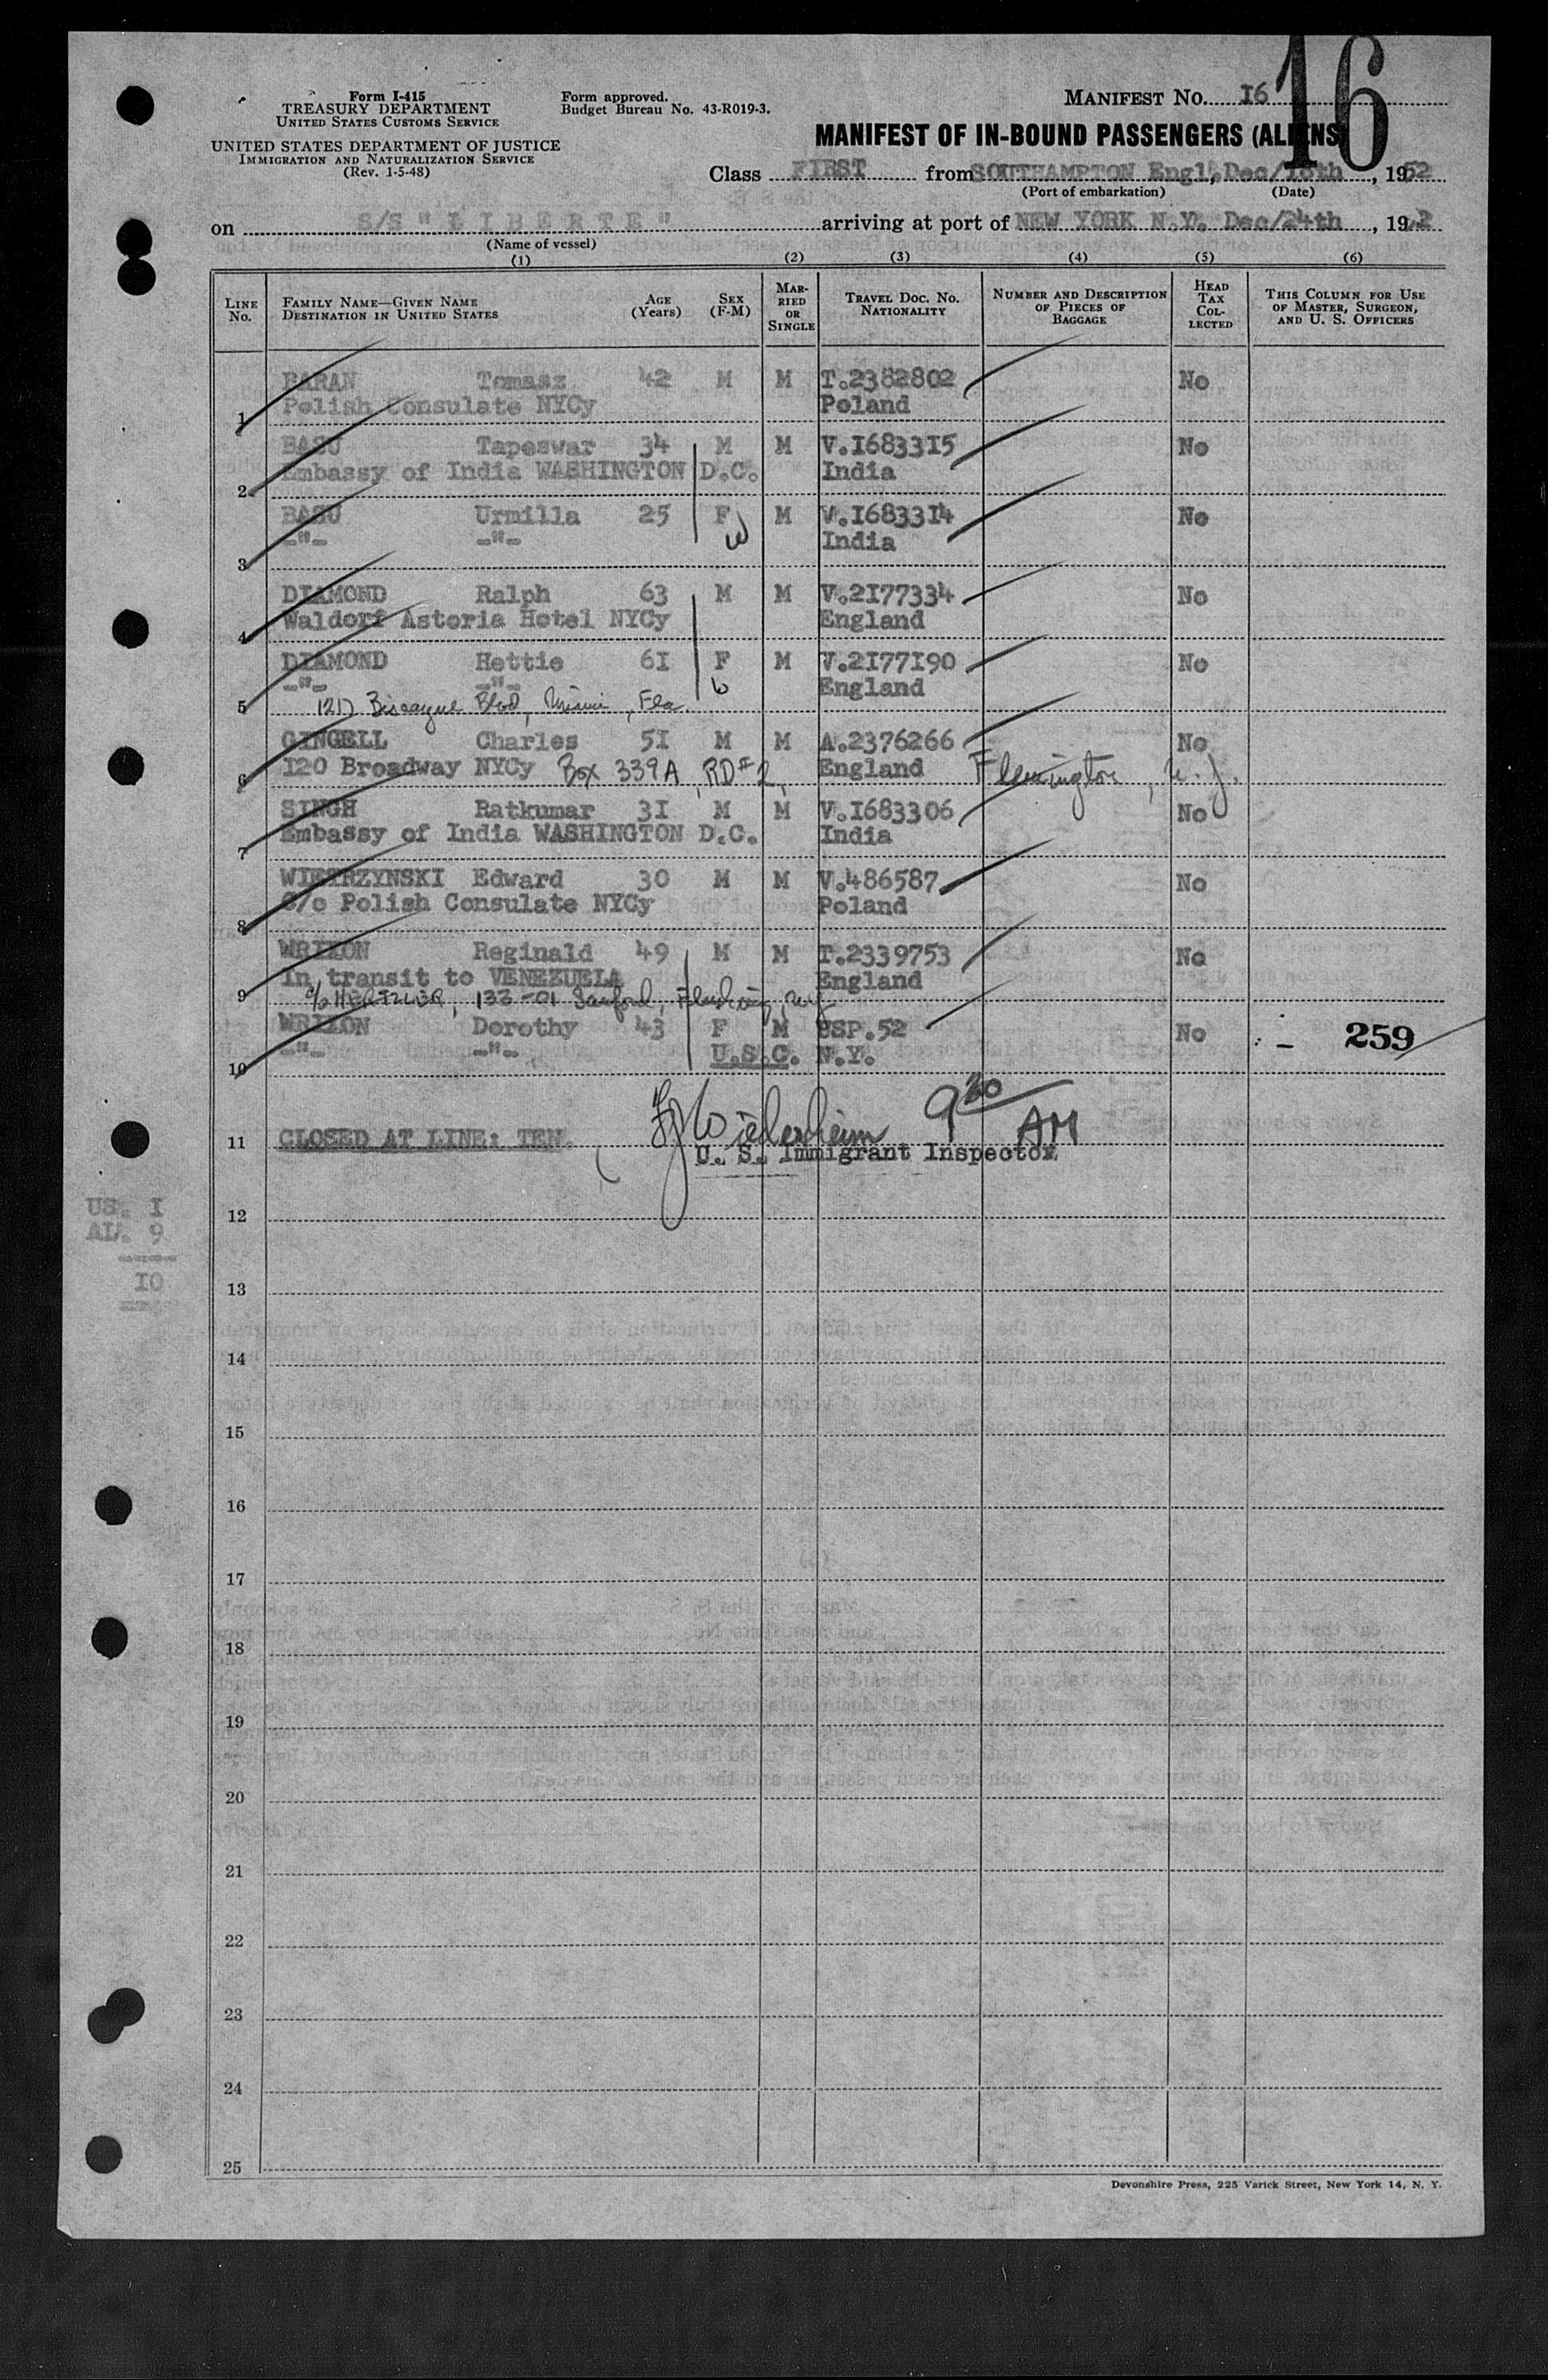 16
Form I-415
TREASURY DEPARTMENT
UNITED STATES CUSTOMS SERVICE
UNITED STATES DEPARTMENT OF JUSTICE
IMMIGRATION AND NATURALIZATION SERVICE
(Rev. 1-5-48)
Form approved.
Budget Bureau No. 43-R019-3.
MANIFEST No. I6
MANIFEST OF IN-BOUND PASSENGERS (ALIENS)
Class FIRST from SOUTHAMPTON Engl, Dec/18th, 1952
(Port of embarkation) (Date)
on S/S "LIBERTE" arriving at port of NEW YORK N.Y. Dec/24th, 1952
(Name of vessel)
(1) (2) (3) (4) (5) (6)
LINE No. FAMILY NAME—GIVEN NAME DESTINATION IN UNITED STATES AGE (Years) SEX (F-M) MARRIED OR SINGLE TRAVEL DOC. NO. NATIONALITY NUMBER AND DESCRIPTION OF PIECES OF BAGGAGE HEAD TAX COLLECTED THIS COLUMN FOR USE OF MASTER, SURGEON, AND U. S. OFFICERS
BARAN Tomasz 42 M M T.2382802 No
1 Polish Consulate NYCy Poland
BASU Tapeswar 34 M M V.I683315 No
2 Embassy of India WASHINGTON D.C. India
BASU Urmilla 25 F M V.I683314 No
3 -"- -"- India
DIAMOND Ralph 63 M M V.2I77334 No
4 Waldorf Astoria Hotel NYCy England
DIAMOND Hettie 6I F M V.2I77I90 No
-"- -"- England
5 Biscayne Blvd, Miami, Fla.
GINGELL Charles 5I M M A.2376266 No
6 I20 Broadway NYCy Box 339A, RD#2, England Flemington, N.J.
SINGH Ratkumar 3I M M V.I683306 No
7 Embassy of India WASHINGTON D.C. India
WIETRZYNSKI Edward 30 M M V.486587 No
8 C/o Polish Consulate NYCy Poland
WRIXON Reginald 49 M M T.2339753 No
In transit to VENEZUELA England
9 c/o HERTZLER, 133-01 Sanford, Flushing, N.Y.
WRIXON Dorothy 43 F M USP.52 No - 259
10 -"- -"- U.S.C. N.Y.
9 30 AM
11 CLOSED AT LINE: TEN
U. S. Immigrant Inspector
US. I
AL. 9
IO
12
13
14
15
16
17
18
19
20
21
22
23
24
25
Devonshire Press, 225 Varick Street, New York 14, N. Y.